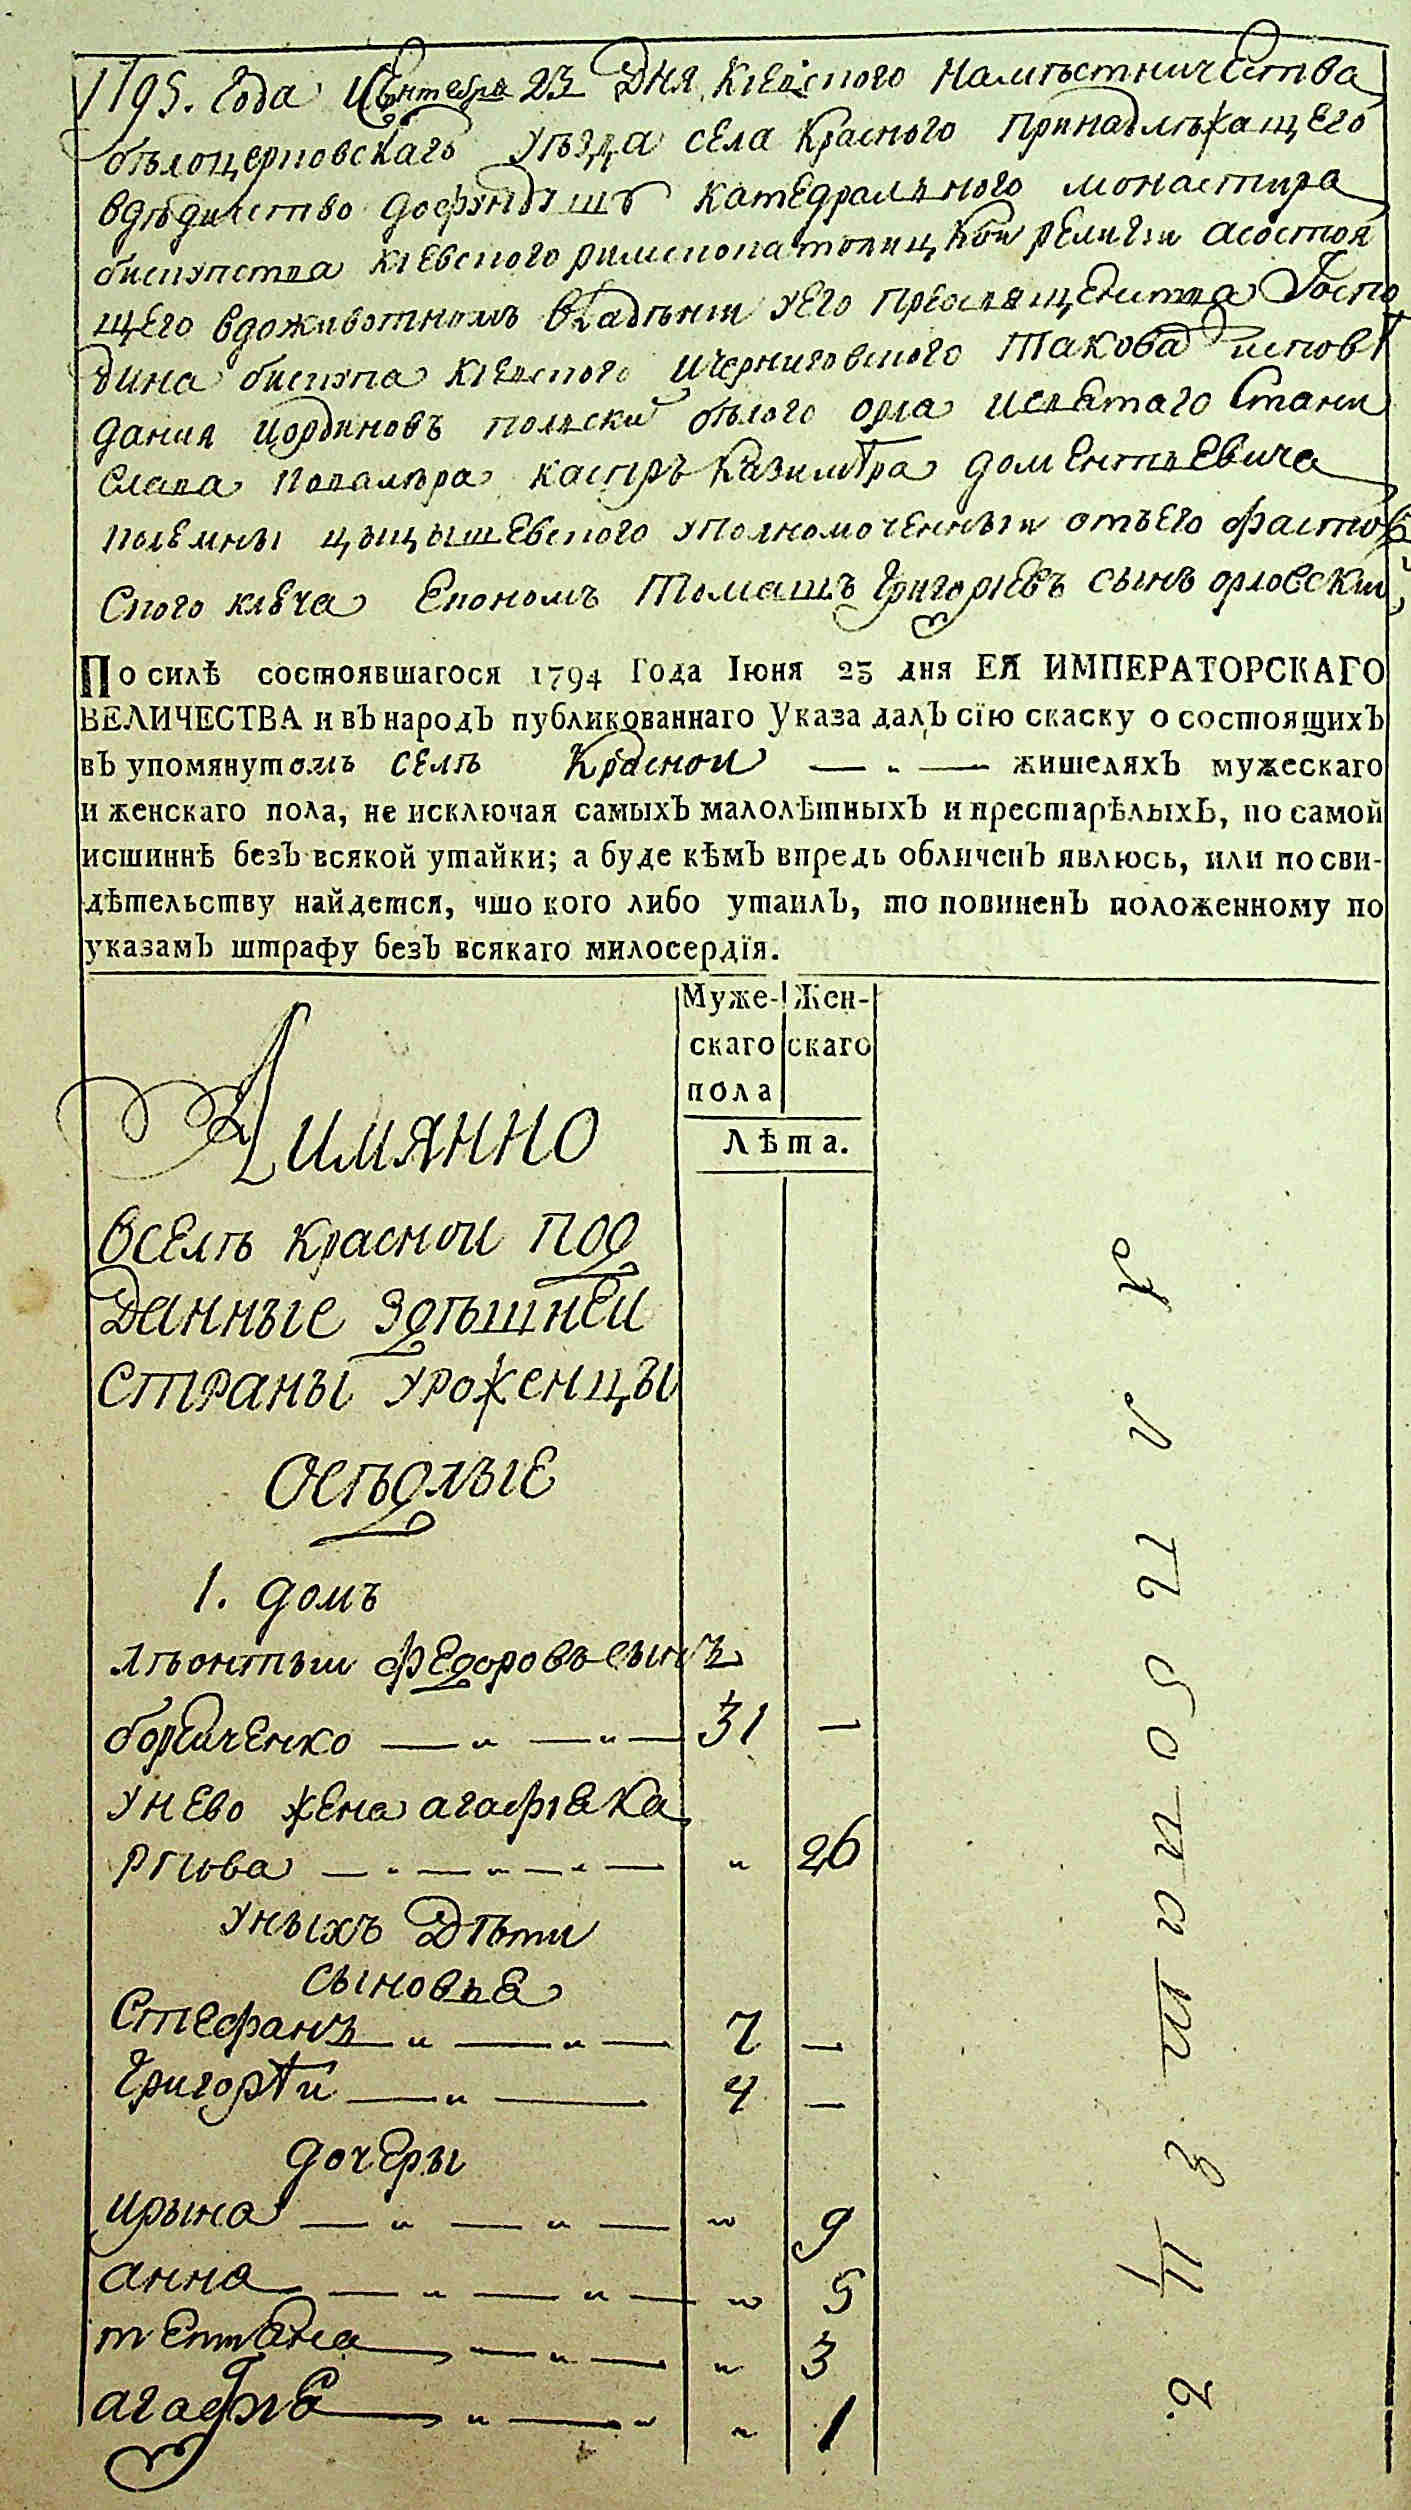 1795. Года Сентебра 23 Дня Киевского намѣстничества
бѣлоцерковскаго уѣзда села Красного принадлѣжащего
вдѣдицтво дофундушъ катедралного монастира
бискупства киевского римскокатолицкой религии асостоя
щего вдоживотномъ владѣнии уего преосвященства Госпо
дина бискупа киевского ичерниговского такова исповѣ
дания иординовъ полски бѣлого орла исвятаго Стани
слава кавалѣра каспръ казимѣра доментиевича
колемны цыцышевского уполномоченный отъего фастов
ского ключа Економъ Томашъ Григориевъ сынъ орловский
По силѣ состоявшагося 1794 Года Іюня 23 дня ЕЯ ИМПЕРАТОРСКАГО
ВЕЛИЧЕСТВА и въ народъ публикованнаго Указа далъ сїю скаску о состоящихъ
въ упомянутомъ селѣ Красной — „ — жителяхъ мужескаго
и женскаго пола, не исключая самыхъ малолѣтныхъ и престарѣлыхъ, по самой
истиннѣ безъ всякой утайки; а буде кѣмъ впредь обличенъ явлюсь, или по сви-
дѣтельству найдется, что кого либо утаилъ, то повиненъ положенному по
указамъ штрафу безъ всякаго милосердїя.
Муже- Жен-
скаго скаго
пола
Лѣта.
Аимянно
Вселѣ красной под
данные здѣшней
страны уроженцы
Осѣдлые
1. домъ
лѣонтый федоровъ сынъ
борсиченко — „ — „ — 31 —
унево жена агафияка
рпова — „ — „ — „ — „ 26
уныхъ дѣти
сыновья
Стефанъ — „ — „ — 7 —
Григорѣй — „ — 4 —
дочеры
ирына — „ — „ — „ 9
анна — „ — „ — „ 5
тетяна — „ — „ 3
агафия — „ — „ „ 1